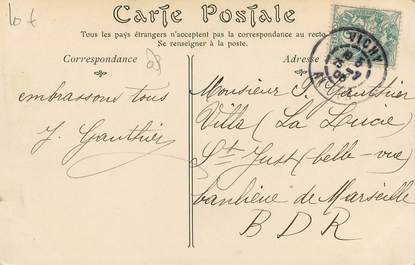 Carte Postale
Tous les pays étrangers n'acceptent pas la correspondance au recto
Se renseigner à la poste.
Correspondance
Adresse
VICHY
embrassons tous
J. Gauthier
Monsieur J. Gauthier
Villa (La Lucie
St Just (belle-vue)
banlieue de Marseille
B D R